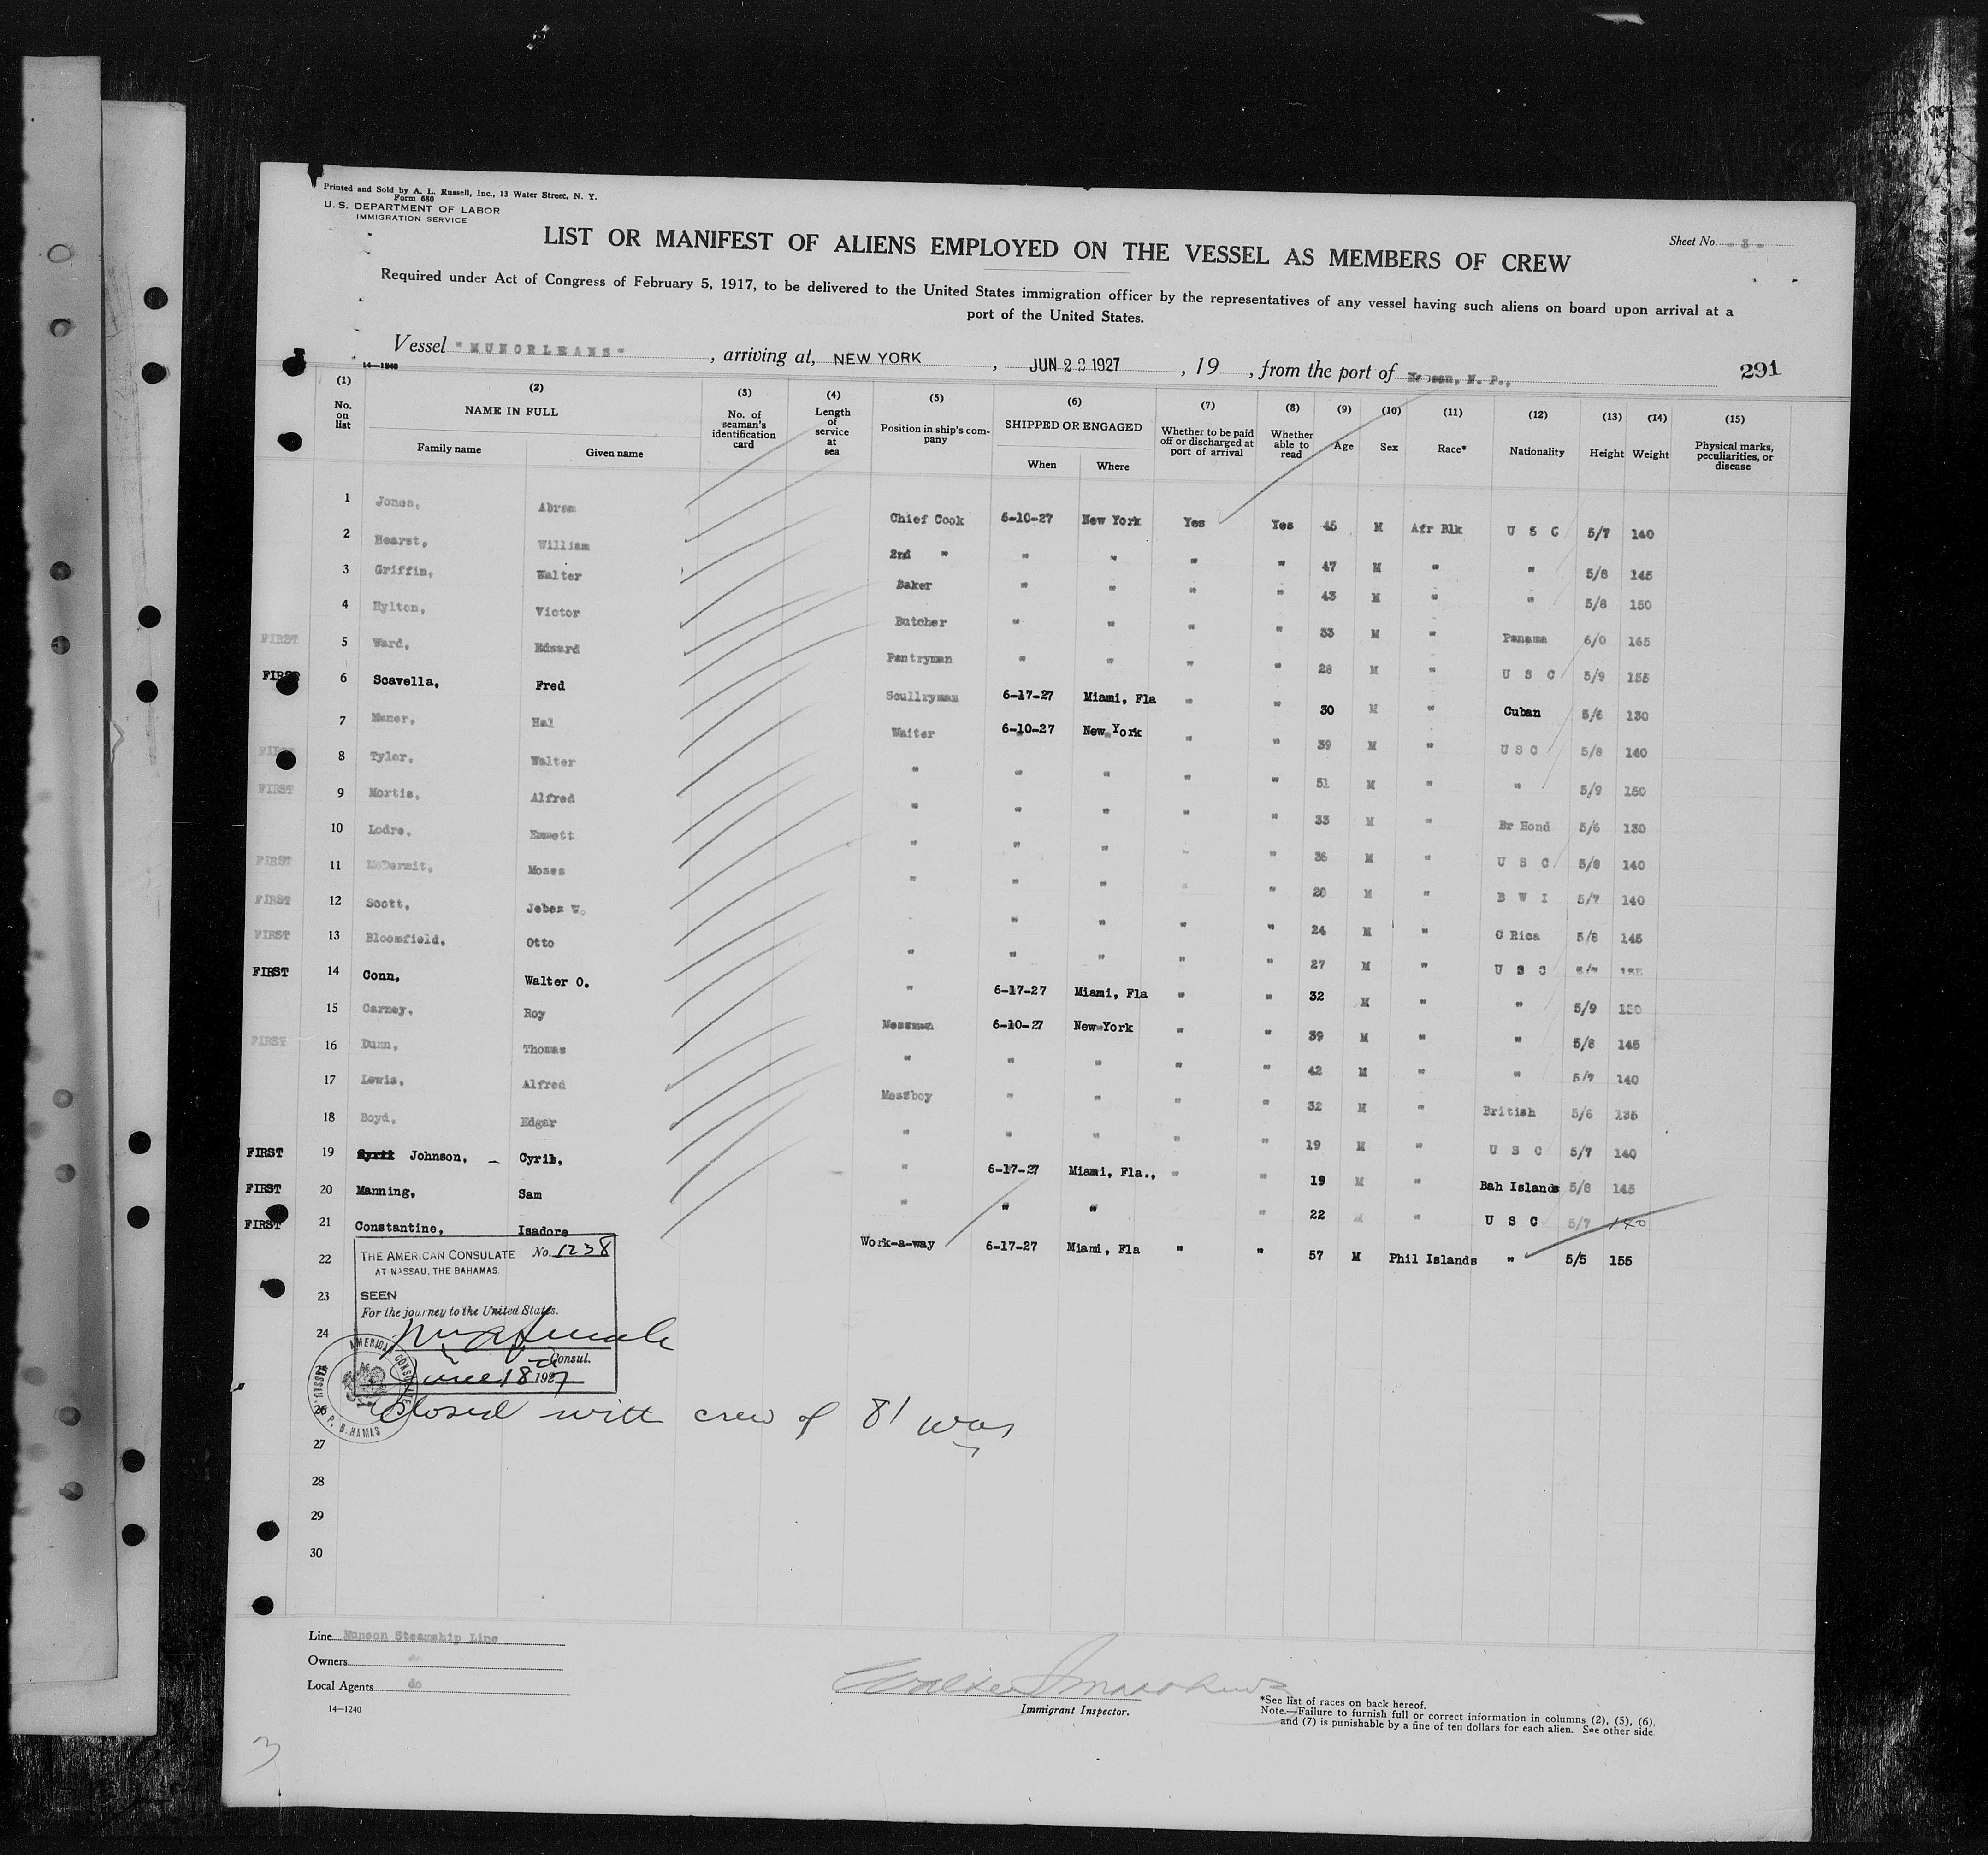 Printed and Sold by A. L. Russell, Inc., 13 Water Street, N. Y.
Form 680
U. S. DEPARTMENT OF LABOR
IMMIGRATION SERVICE
Sheet No. - 3 -
LIST OR MANIFEST OF ALIENS EMPLOYED ON THE VESSEL AS MEMBERS OF CREW
Required under Act of Congress of February 5, 1917, to be delivered to the United States immigration officer by the representatives of any vessel having such aliens on board upon arrival at a
port of the United States.
Vessel "MUNORLEANS", arriving at, NEW YORK, JUN 22 1927, 19 , from the port of Nassau, N. P., 291
14—1240
(1) No. on list (2) NAME IN FULL Family name Given name (3) No. of seaman's identification card (4) Length of service at sea (5) Position in ship's company (6) SHIPPED OR ENGAGED When Where (7) Whether to be paid off or discharged at port of arrival (8) Whether able to read (9) Age (10) Sex (11) Race* (12) Nationality (13) Height (14) Weight (15) Physical marks, peculiarities, or disease
1 Jones, Abram Chief Cook 6-10-27 New York Yes Yes 45 M Afr Blk U S C 5/7 140
2 Hearst, William 2nd " " " " " 47 M " " 5/8 145
3 Griffin, Walter Baker " " " " 43 M " " 5/8 150
4 Hylton, Victor Butcher " " " " 33 M " Panama 6/0 165
FIRST 5 Ward, Edward Pantryman " " " " 28 M " U S C 5/9 155
FIRST 6 Scavella, Fred Scullryman 6-17-27 Miami, Fla " " 30 M " Cuban 5/6 130
7 Maner, Hal Waiter 6-10-27 New York " " 39 M " U S C 5/8 140
FIRST 8 Tyler, Walter " " " " " 51 M " " 5/9 150
FIRST 9 Mortis, Alfred " " " " " 33 M " Br Hond 5/6 130
10 Lodre, Emmett " " " " " 36 M " U S C 5/8 140
FIRST 11 McDermit, Moses " " " " " 28 M " B W I 5/7 140
FIRST 12 Scott, Jebez W. " " " " 24 M " C Rica 5/8 145
FIRST 13 Bloomfield, Otto " " " " " 27 M " U S C 5/7
FIRST 14 Conn, Walter O. " 6-17-27 Miami, Fla " " 32 M " " 5/9 150
15 Garney, Roy Messman 6-10-27 New York " " 39 M " " 5/8 145
FIRST 16 Dunn, Thomas " " " " " 42 M " " 5/7 140
17 Lewis, Alfred Messboy " " " " 32 M " British 5/6 135
18 Boyd, Edgar " " " " " 19 M " U S C 5/7 140
FIRST 19 Johnson, - Cyril, " 6-17-27 Miami, Fla., " " 19 M " Bah Islands 5/8 145
FIRST 20 Manning, Sam " " " " 22 M " U S C 5/7 140
FIRST 21 Constantine, Isadore Work-a-way 6-17-27 Miami, Fla " " 57 M Phil Islands " 5/5 155
22
23
24
25
26
27
28
29
30
THE AMERICAN CONSULATE No. 1238
AT NASSAU, THE BAHAMAS.
SEEN
For the journey to the United States.
Consul.
June 18 1927
AMERICAN CONSULATE NASSAU, N. P. BAHAMAS
Closed with crew of 81
Line Munson Steamship Line
Owners do
Local Agents do
14—1240
Immigrant Inspector.
*See list of races on back hereof.
Note.—Failure to furnish full or correct information in columns (2), (5), (6),
and (7) is punishable by a fine of ten dollars for each alien. See other side.
3